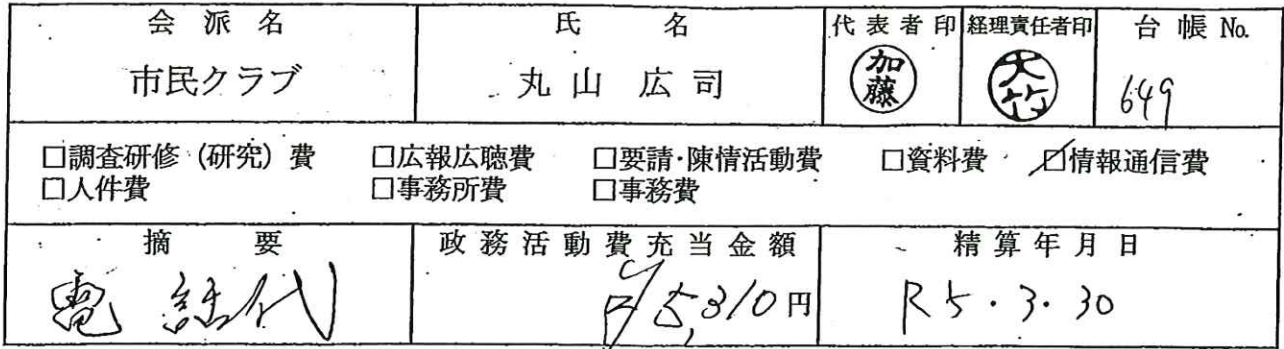 会派名 氏名 代表者印 経理責任者印 台帳 No.
市民クラブ 丸山広司 加藤 大竹 649
□調査研修（研究）費 □広報広聴費 □要請・陳情活動費 □資料費 ☑情報通信費
□人件費 □事務所費 □事務費
摘要 政務活動費充当金額 精算年月日
電話代 5,310円 R5・3・30